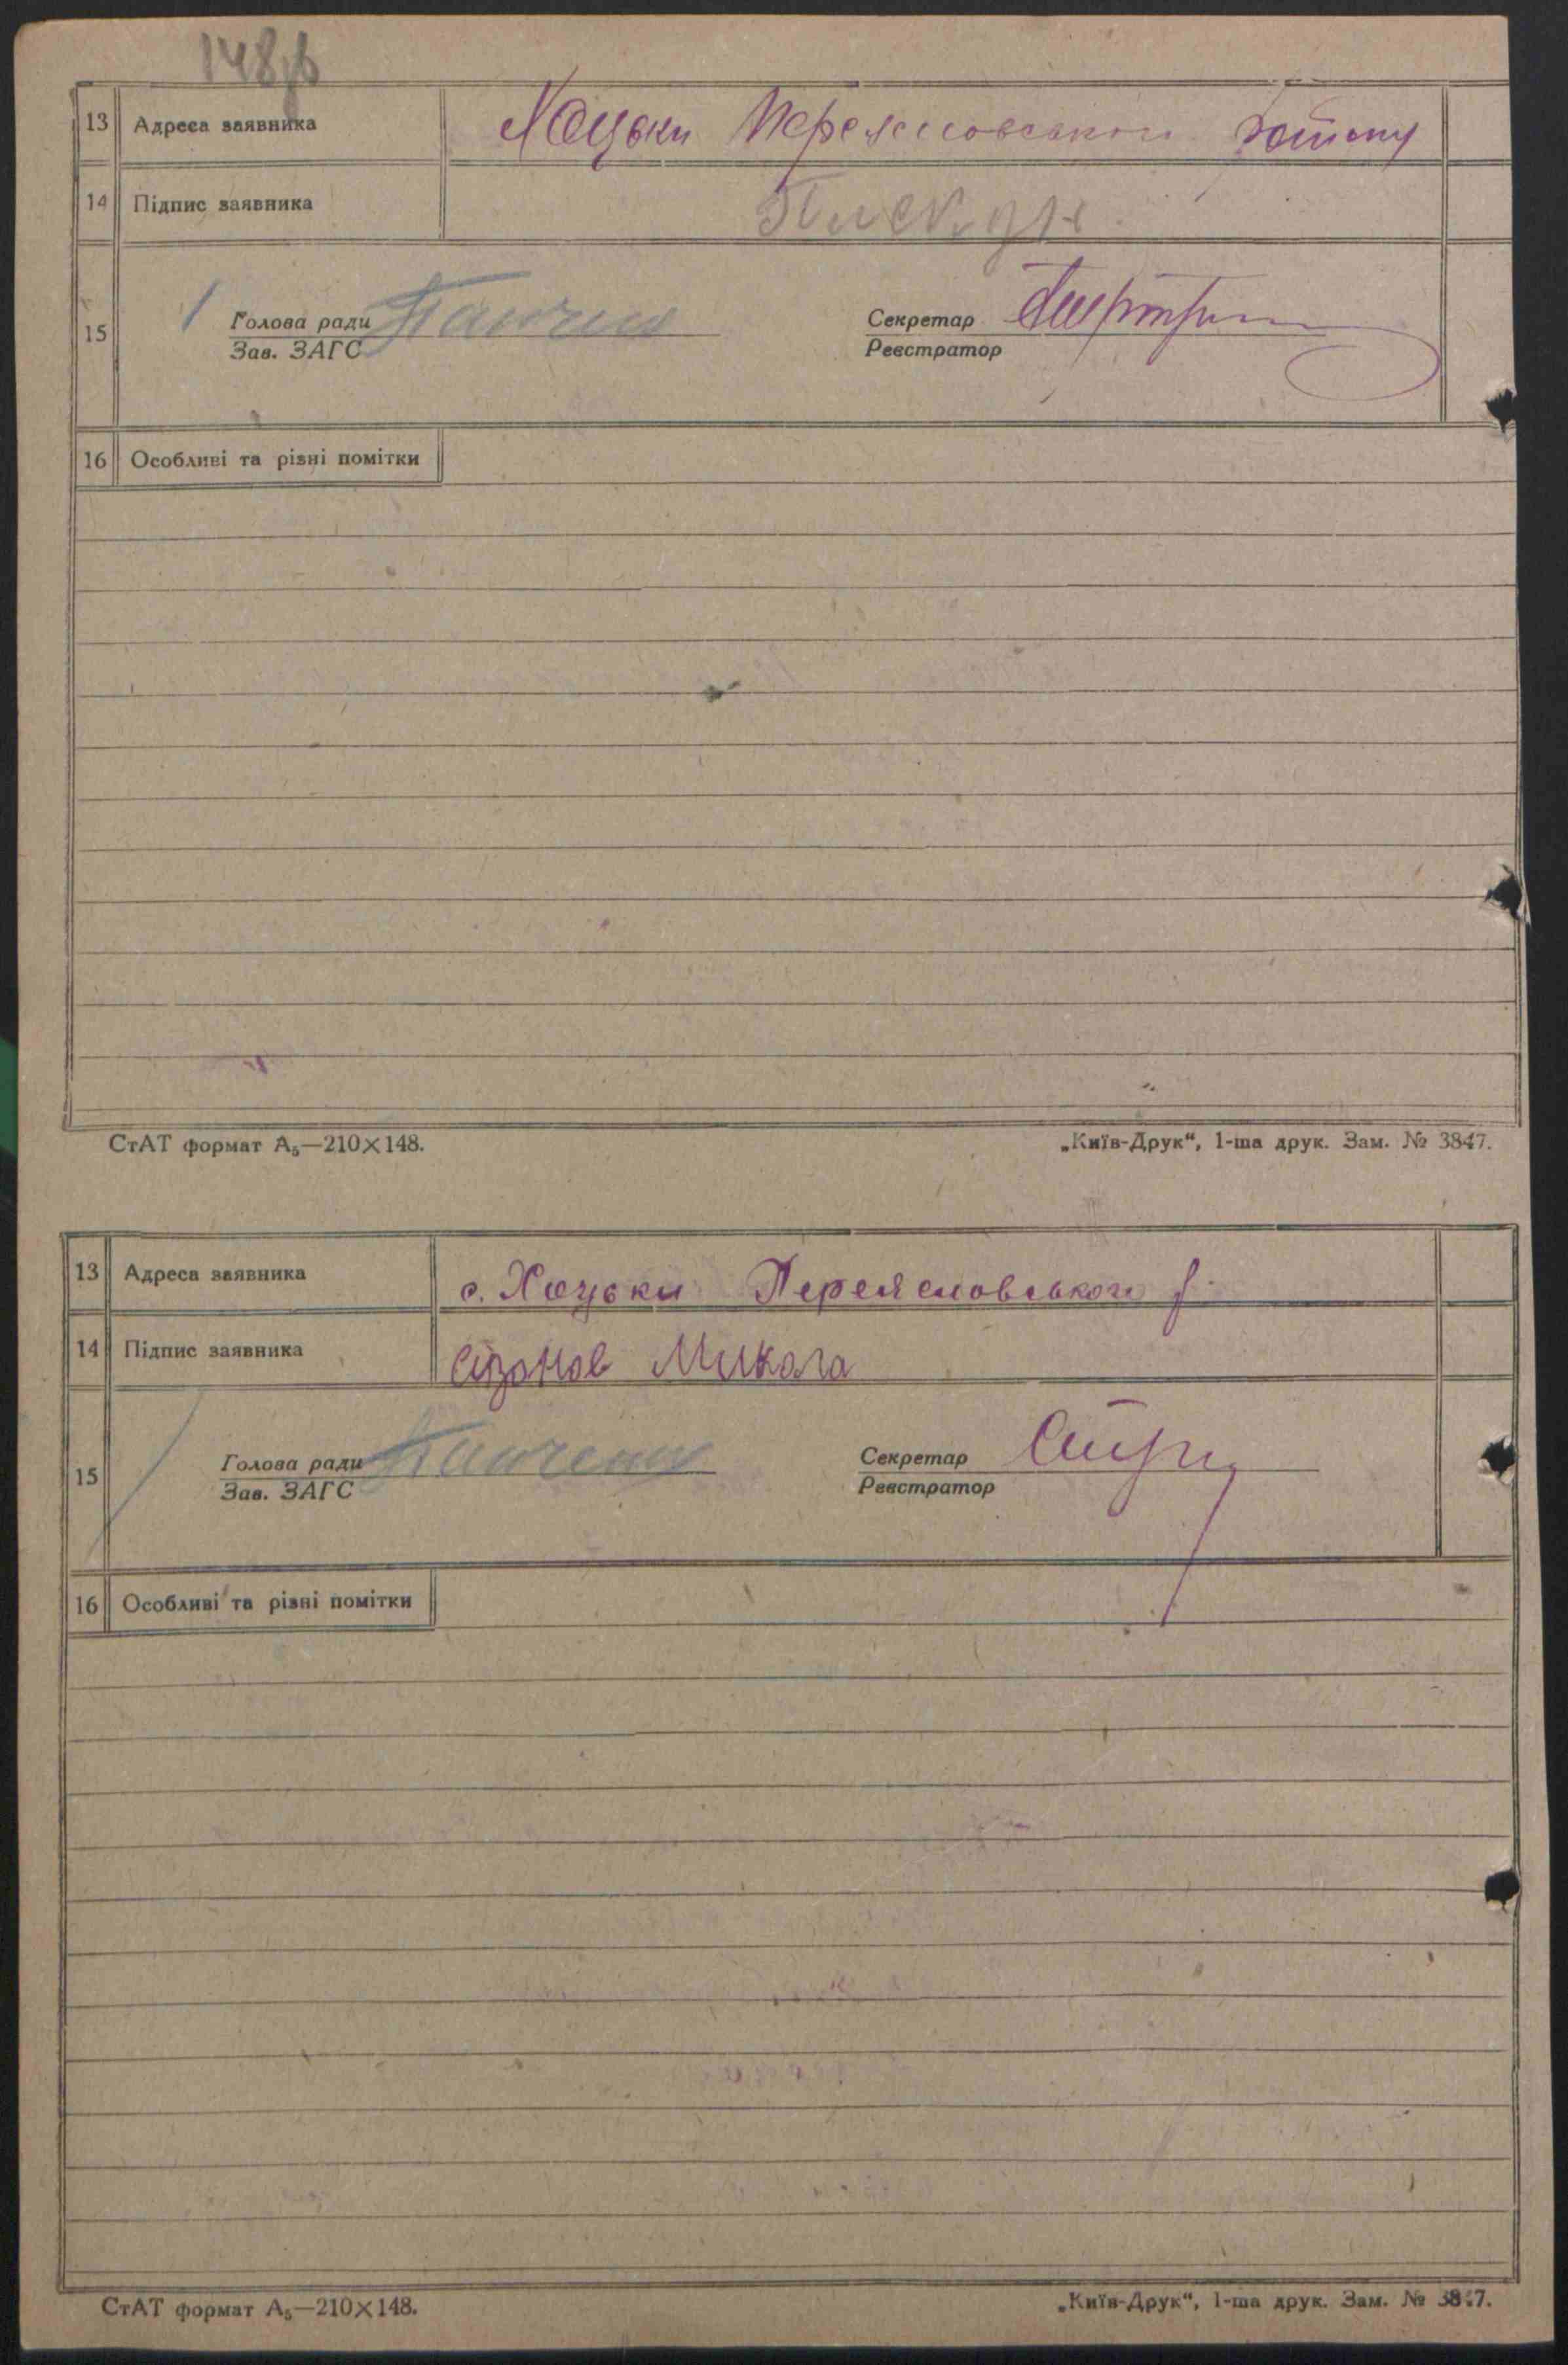 13 Адреса заявника Хоцьки Переясловського району
14 Підпис заявника
15 Голова ради Панченко Секретар
Зав. ЗАГС Реєстратор
16 Особливі та різні помітки
СтАТ формат А₅—210×148. „Київ-Друк“, 1-ша друк. Зам. № 3847.
13 Адреса заявника с. Хоцьки Переясловського р.
14 Підпис заявника Сізонов Микола
15 Голова ради Панченко Секретар
Зав. ЗАГС Реєстратор
16 Особливі та різні помітки
СтАТ формат А₅—210×148. „Київ-Друк“, 1-ша друк. Зам. № 3847.